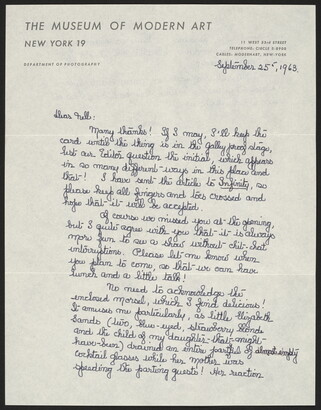 THE MUSEUM OF MODERN ART
NEW YORK 19
11 WEST 53rd STREET
TELEPHONE: CIRCLE 5-8900
CABLES: MODERNART, NEW-YORK
DEPARTMENT OF PHOTOGRAPHY
September 25th, 1963
Dear Nell:
Many thanks! If I may, I'll keep the
card until the thing is in the galley proof stage,
lest our Editor question the initial, which appears
in so many different ways in this place and
that! I have sent the article to Infinity, so
please keep all fingers and toes crossed and
hope that it will be accepted.
Of course we missed you at the opening,
but I quite agree with you that it is always
more fun to see a show without chit-chat
interruptions. Please let me know when
you plan to come, so that we can have
lunch and a little talk!
No need to acknowledge the
enclosed morsel, which I find delicious!
It amuses me particularly, as little Elizabeth
Sands (two, blue-eyed, strawberry blonde
and the child of my daughter-that-might-
have-been) drained an entire partyful of almost empty
cocktail glasses while her mother was
speeding the parting guests! Her reaction